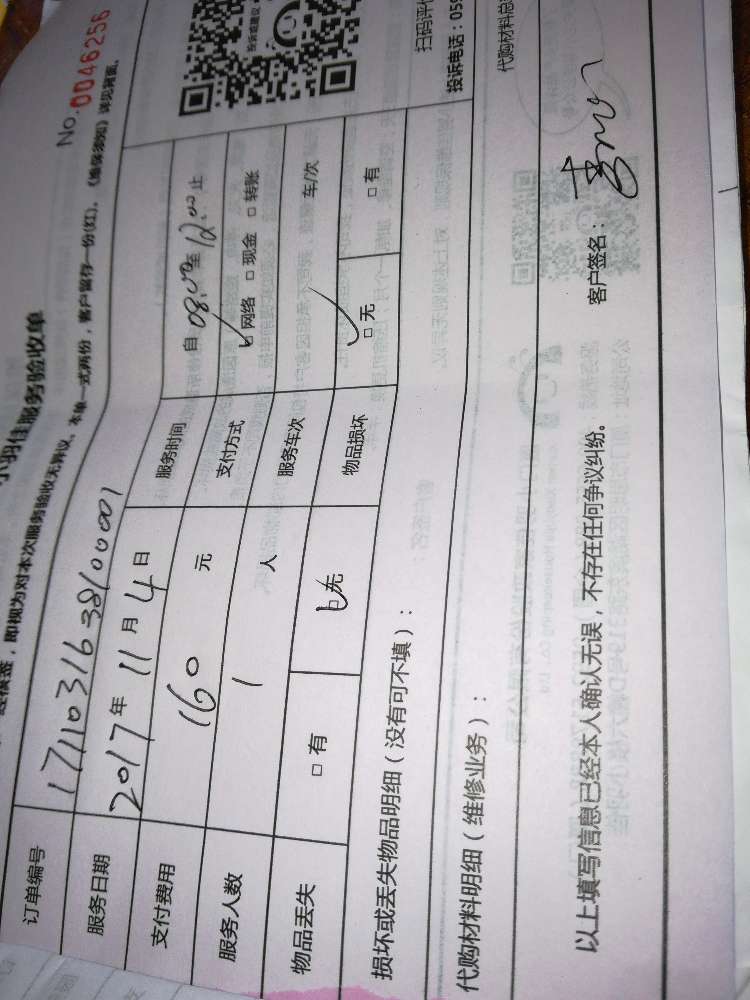 小羽佳服务验收单
No. 0046256
即视为对本次服务验收无异议。本单一式两份，客户留存一份(红)。《维保须知》详见背面。
订单编号 17110316338100001
服务日期 2017年 11月 4日 服务时间 自 08:00至 12:00止
支付费用 160 元 支付方式 网络 □ 现金 □ 转账
服务人数 1 人 服务车次 车/次
物品丢失 □ 有 □ 无 物品损坏 □ 无 □ 有
损坏或丢失物品明细（没有可不填）：
代购材料明细（维修业务）：
代购材料总
以上填写信息已经本人确认无误，不存在任何争议纠纷。 客户签名：
投诉或建议
扫码评价
投诉电话：059